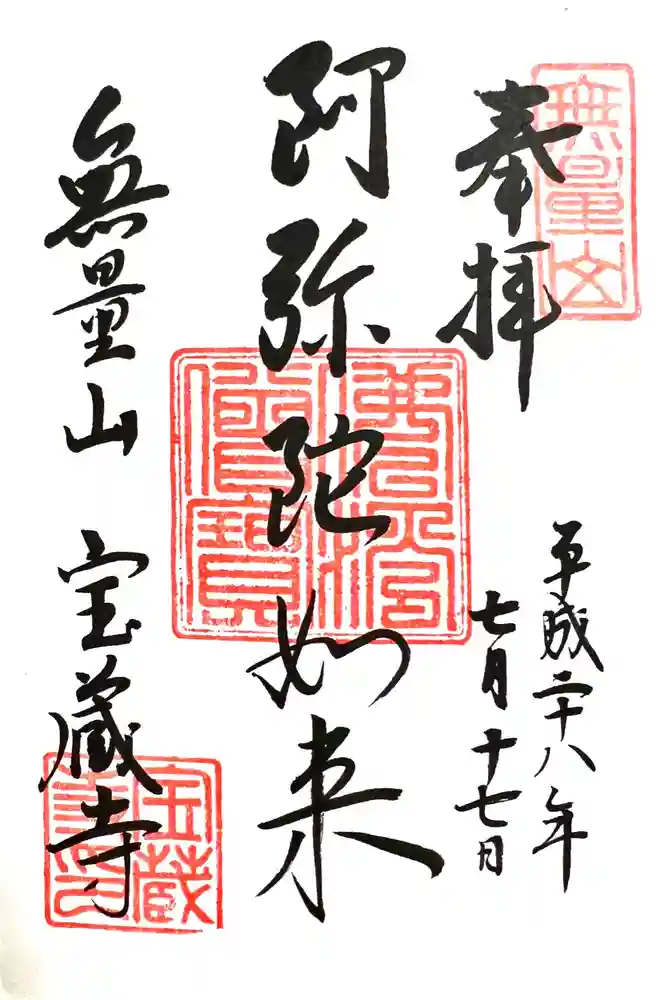 無量山
奉拝
平成二十八年
七月十七日
阿弥陀如来
佛法僧寶
無量山 宝蔵寺
宝蔵
寺印